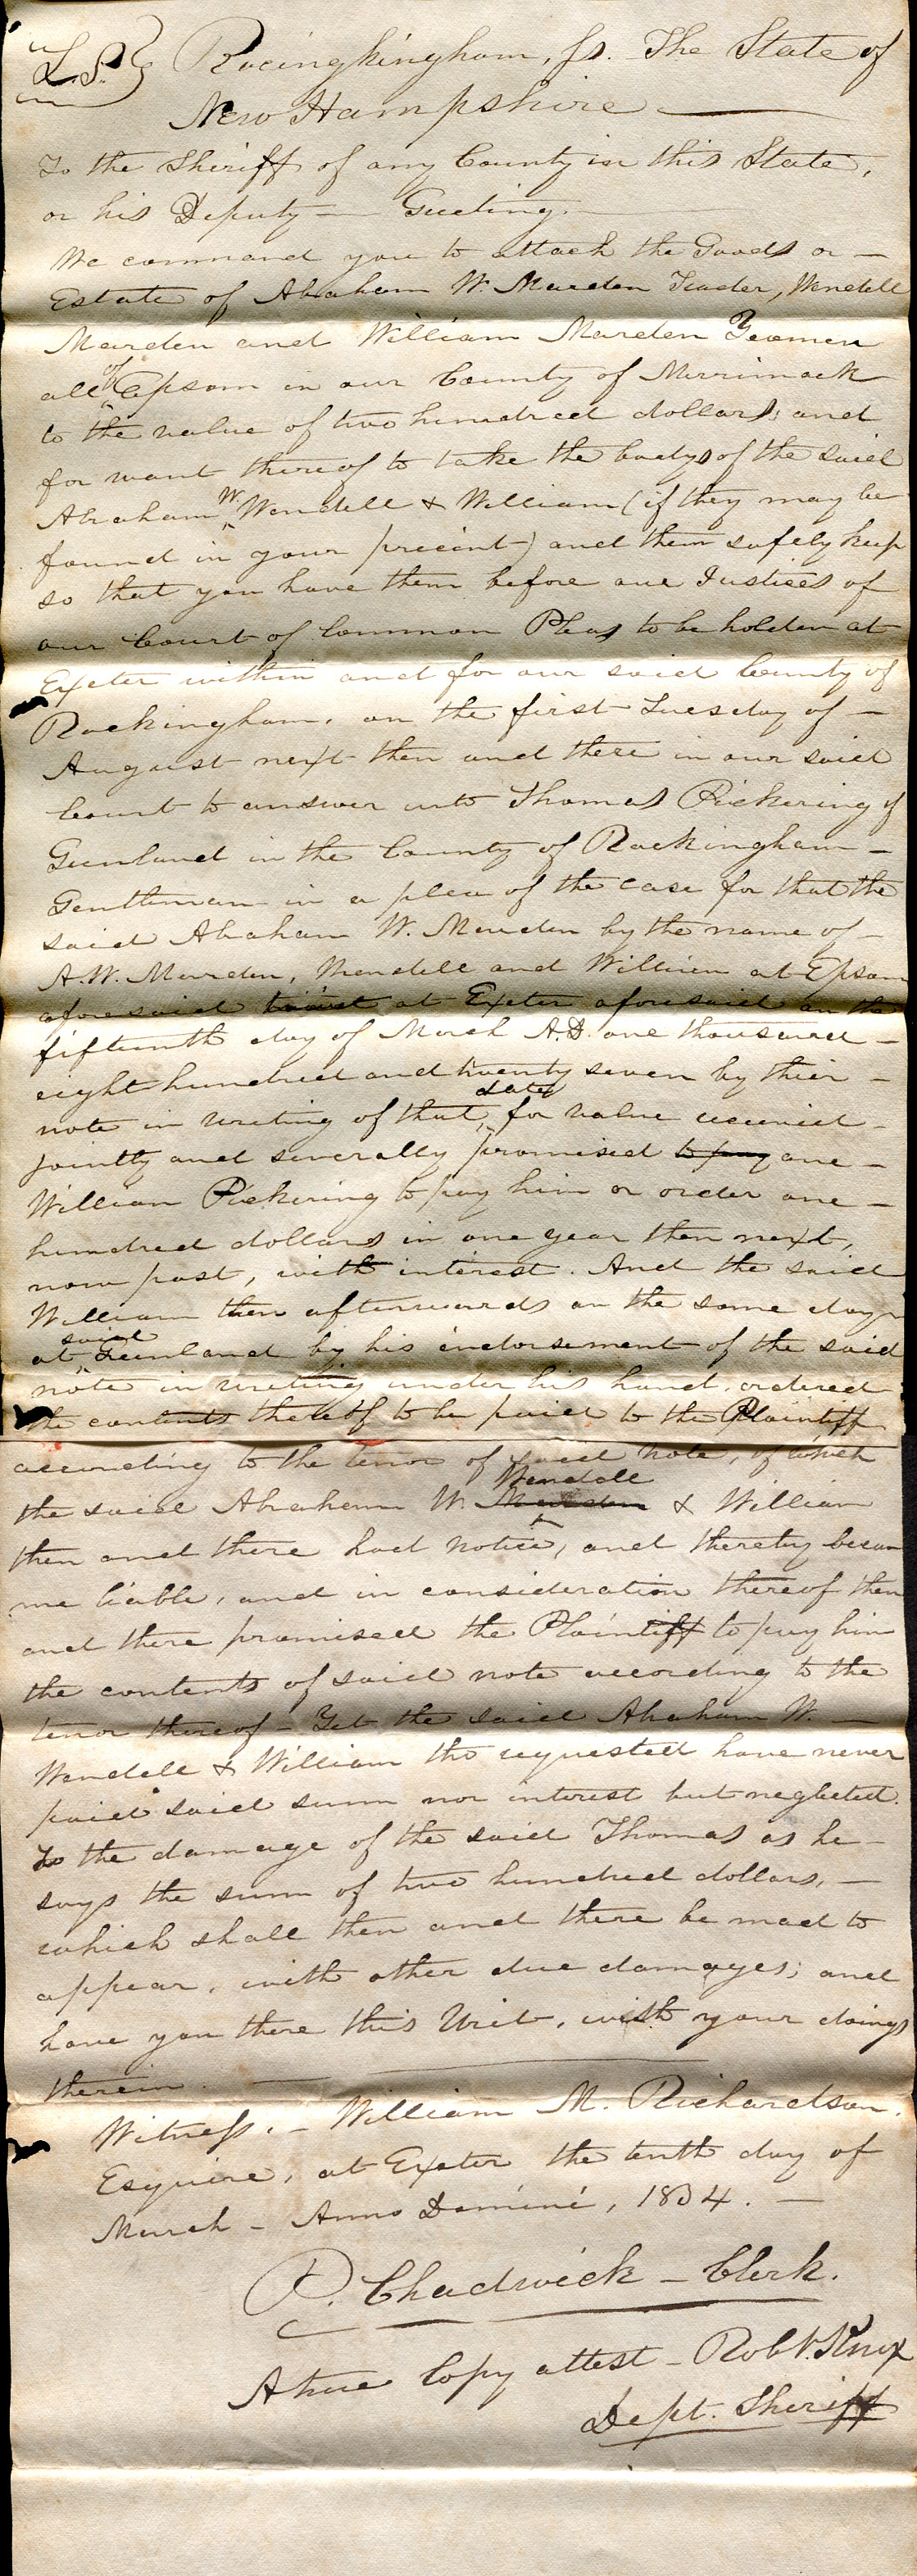 L.S. Rocinghingham, ss. The State of
New Hampshire
To the Sheriff of any County in this State,
or his Deputy — Greeting.
We command you to attach the Goods or —
Estate of Abraham W. Marden Trader, Wendell
Marden and William Marden Yeomen
all of Epsom in our County of Merrimack
to the value of two hundred dollars; and
for want thereof to take the bodys of the said
Abraham W. Wendell & William (if they may be
found in your precint) and them safely keep
so that you have them before our Justices of
our Court of Common Pleas to be holden at
Exeter within and for our said County of
Rockingham, on the first Tuesday of —
August next then and there in our said
Court to answer unto Thomas Pickering of
Greenland in the County of Rockingham —
Gentleman in a plea of the case for that the
said Abraham W. Marden by the name of —
A.W. Marden, Wendell and William at Epsom
aforesaid at Exeter aforesaid on the
fifteenth day of March A.D. one thousand —
eight hundred and twenty seven by thier —
note in writing of that date, for value received —
jointly and severally promised to pay one —
William Pickering to pay him or order one —
hundred dollars in one year then next,
now past, with interest. And the said
William then afterwards on the same day
at said Greenland by his endorsement of the said
note in writing under his hand, ordered
the contents thereof to be paid to the Plaintiff
according to the tenor of said note, of which
the said Abraham W. Marden Wendell & William
then and there had notice, and thereby becam
me liable, and in consideration thereof then
and there promised the Plaintiff to pay him
the contents of said note according to the
tenor thereof — Yet the said Abraham W. —
Wendell & William tho requested have never
paid said sum nor interest but neglected.
To the damage of the said Thomas as he —
says the sum of two hundred dollars, —
which shall then and there be mad to
appear, with other due damages; and
have you there this Writ, with your doings
therein.
Witness. — William M. Richardson.
Esquire, at Exeter the tenth day of
March — Anno Domini, 1834. —
P. Chadwick — Clerk.
A true Copy attest — Robt. Knox
Dept. Sheriff